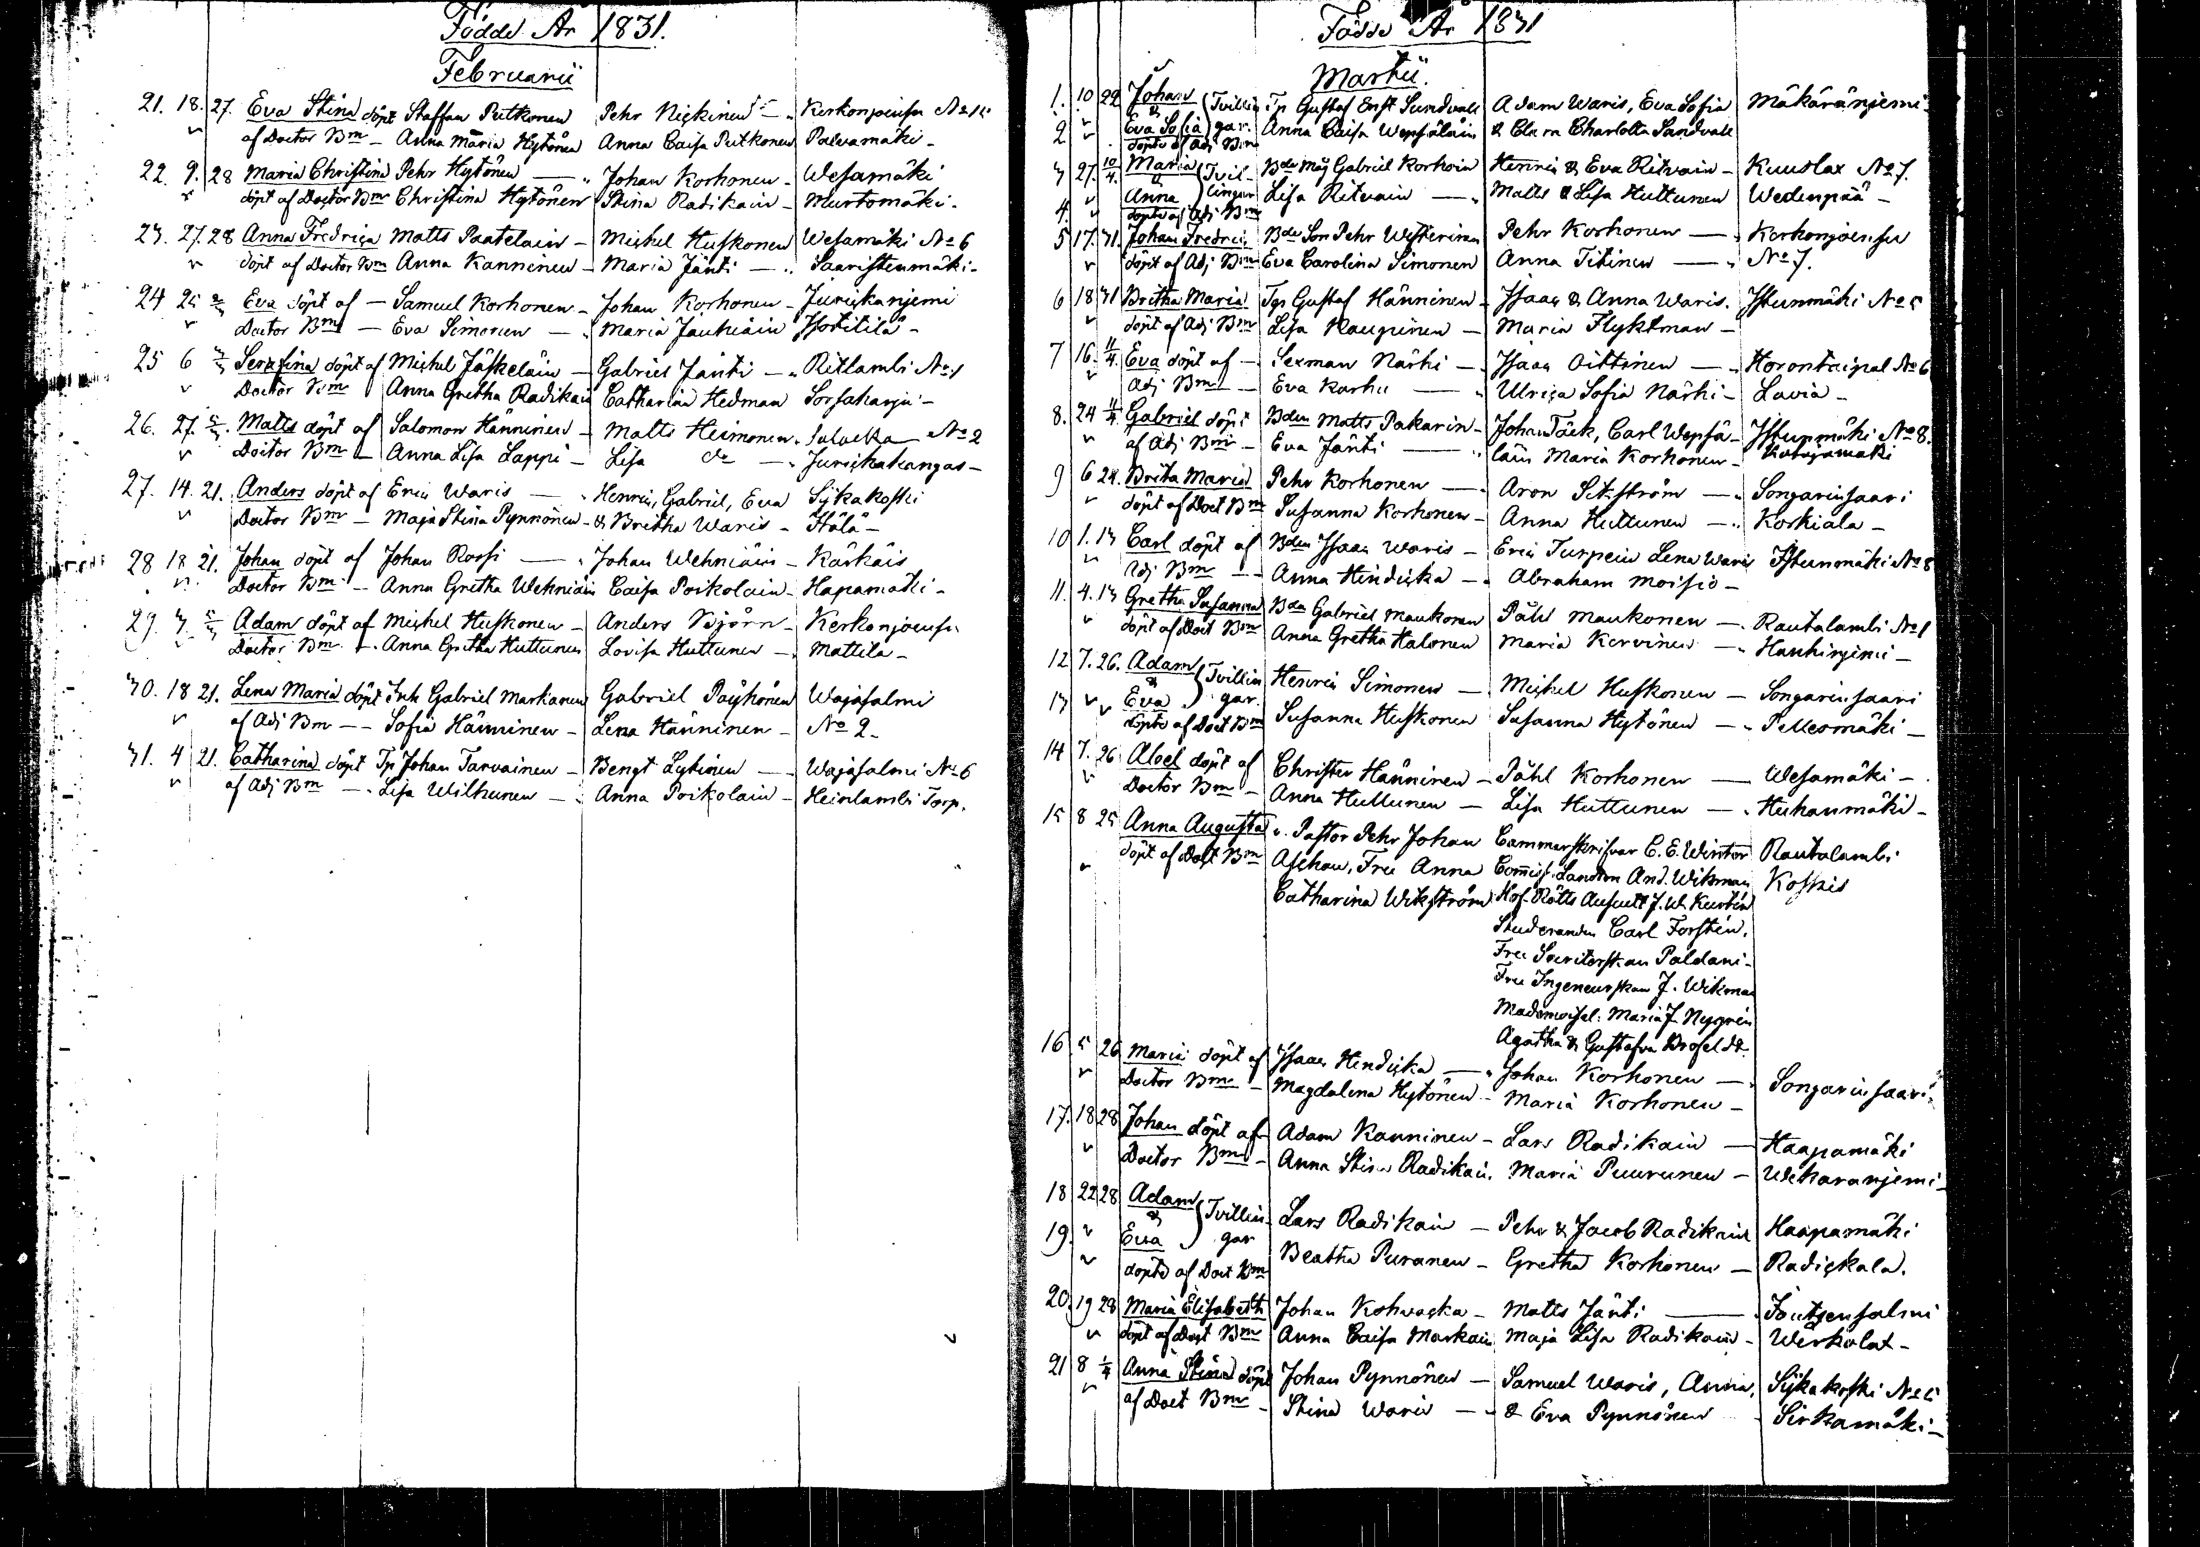 Födde År 1831.
Februarii
21. 18. 27. Eva Stina döpt Staffan Putkonen Pehr Nickinen Kerkonjoensu No 15
af Doctor Bm Anna Maria Hytönen Anna Caisa Putkonen Palvamäki
22. 9. 28 Maria Christina Pehr Hytönen Johan Korhonen Wesamäki
döpt af Doctor Bm Christina Hytönen Stina Radikain Murtomäki
23. 27. 28 Anna Fredrica Matts Paatelain Michel Huskonen Wesamäki No 6
döpt af Doctor Bm Anna Kanninen Maria Jänti Saaristenmäki
24 25 Eva döpt af Samuel Korhonen Johan Korhonen Jurickanjemi
Doctor Bm Eva Simonen Maria Jauhiain
25 6 Serafina döpt af Michel Jäskelain Gabriel Jänti Ritlambi No 1
Doctor Bm Anna Gretha Radikain Catharina Hedman Sorsaharju
26. 27. Matts döpt af Salomon Hänninen Matts Heimonen No 2
Doctor Bm Anna Lisa Lappi Lisa do Jurickakangas
27. 14. 21. Anders döpt af Eric Waris Henric, Gabriel, Eva Sijkakoski
Doctor Bm Maja Stina Pynnönen & Bretha Waris Hälä
28 18 21. Johan döpt af Johan Rossi Johan Wehniäin Kärkäis
Doctor Bm Anna Gretha Wehniäin Caisa Poikolain Hapamäki
29. 3. Adam döpt af Michel Huskonen Anders Björn Kerkonjoensu
Doctor Bm Anna Gretha Huttunen Lovisa Huttunen Mattila
30. 18 21. Lena Maria döpt Inh Gabriel Markanen Gabriel Paijhonen Wajasalmi
af Adj Bm Sofia Hänninen Lena Hänninen No 2
31. 4 21. Catharina döpt Tp Johan Tarvainen Bengt Lytinen Wajasalmi No 6
af Adj Bm Lisa Wilhunen Anna Poikolain Heinlambi Torp.
Födde År 1831
Martii.
1. 10 22 Johan & Tvillin Tp Gustaf Enst Sundvall Adam Waris, Eva Sofia Mäkäränjemi
2 Eva Sofia gar. Anna Caisa Wepsäläin & Clara Charlotta Sandvall
döpte af Adj Bm
3 27. 10/4. Maria & Tvil- Bde Måg Gabriel Korhoin Henric & Eva Ritvain Kuuslax No 7.
4. Anna lingar Lisa Ritvain Matts & Lisa Huttunen Wedenpää
döpte af Adj Bm
5 17. 31. Johan Fredric Bde Son Pehr Westerinen Pehr Korhonen Kerkonjoensu
döpt af Adj Bm Eva Carolina Simonen Anna Titinen No 7.
6 18 31 Britha Maria Tp Gustaf Hänninen Isaac & Anna Waris. Istunmäki No 5
döpt af Adj Bm Lisa Kaupinen Maria Flyktman
7 16. 11/4. Eva döpt af Sexman Närhi Isaac Oittinen Horontaipal No 6
Adj Bm Eva Karhu Ulrica Sofia Närhi Lavia
8. 24 11/4 Gabriel döpt Bden Matts Pakarin Johan Täck, Carl Wepsä- Istunmäki No 8.
af Adj Bm Eva Jänti läin Maria Korhonen Katajamäki
9 6 24. Brita Maria Pehr Korhonen Aron Sikström Songarinsaari
döpt af Doct Bm Susanna Korhonen Anna Huttunen Korkiala
10 1. 13 Carl döpt af Bden Isaac Waris Eric Turpein Lena Waris Istunmäki No 8
Adj Bm Anna Hindicka Abraham Moisio
11. 4. 13 Gretha Susanna Bde Gabriel Maukonen Påhl Maukonen Rautalambi No 1
döpt af Doct Bm Anna Gretha Halonen Maria Kervinen Hanhinjemi
12 7. 26. Adam & Tvillin Henric Simonen Michel Huskonen Songarinsaari
13 Eva gar. Susanna Huskonen Susanna Hytönen Pellesmäki
döpte af Doct Bm
14 7. 26. Abel döpt af Christer Hänninen Påhl Korhonen Wesamäki
Doctor Bm Anna Huttunen Lisa Huttunen Huhanmäki
15 8 25 Anna Augusta v. Pastor Pehr Johan Cammarskrifvar C. E. Winter Rautalambi
döpt af Doct Bm Aschan, Fru Anna Comiss. Landtm And. Wikman Koskis
Catharina Wikström Hof-Rätts Auscult J. W. Kurtén
Studeranden Carl Forstén.
Fru Secriterskan Paldani
Fru Ingeneurskan J. Wikman
Mademoisel: Maria J. Nygrén
Agatha & Gustafva Brofeldt
16 5 26 Maria döpt af Isaac Hendicka Johan Korhonen Songarinsaari
Doctor Bm Magdalena Hytönen Maria Korhonen
17. 18 28 Johan döpt af Adam Kanninen Lars Radikain Haapamäki
Doctor Bm Anna Stina Radikain. Maria Puurunen Wekaranjemi
18 22 28 Adam & Tvillin Lars Radikain Pehr & Jacob Radikain Haapamäki
19. Eva gar Beatha Puranen Gretha Korhonen Radickala.
döpte af Doct Bm
20. 19 28 Maria Elisabeth Johan Kohvacka Matts Jänti Joutsensalmi
döpt af Doct Bm Anna Caisa Markain Maja Lisa Radikain Werkolat
21 8 1/4 Anna Stina döpt Johan Pynnönen Samuel Waris, Anna, Sijkakoski No 5
af Doct Bm Stina Waris & Eva Pynnönen Sirkamäki